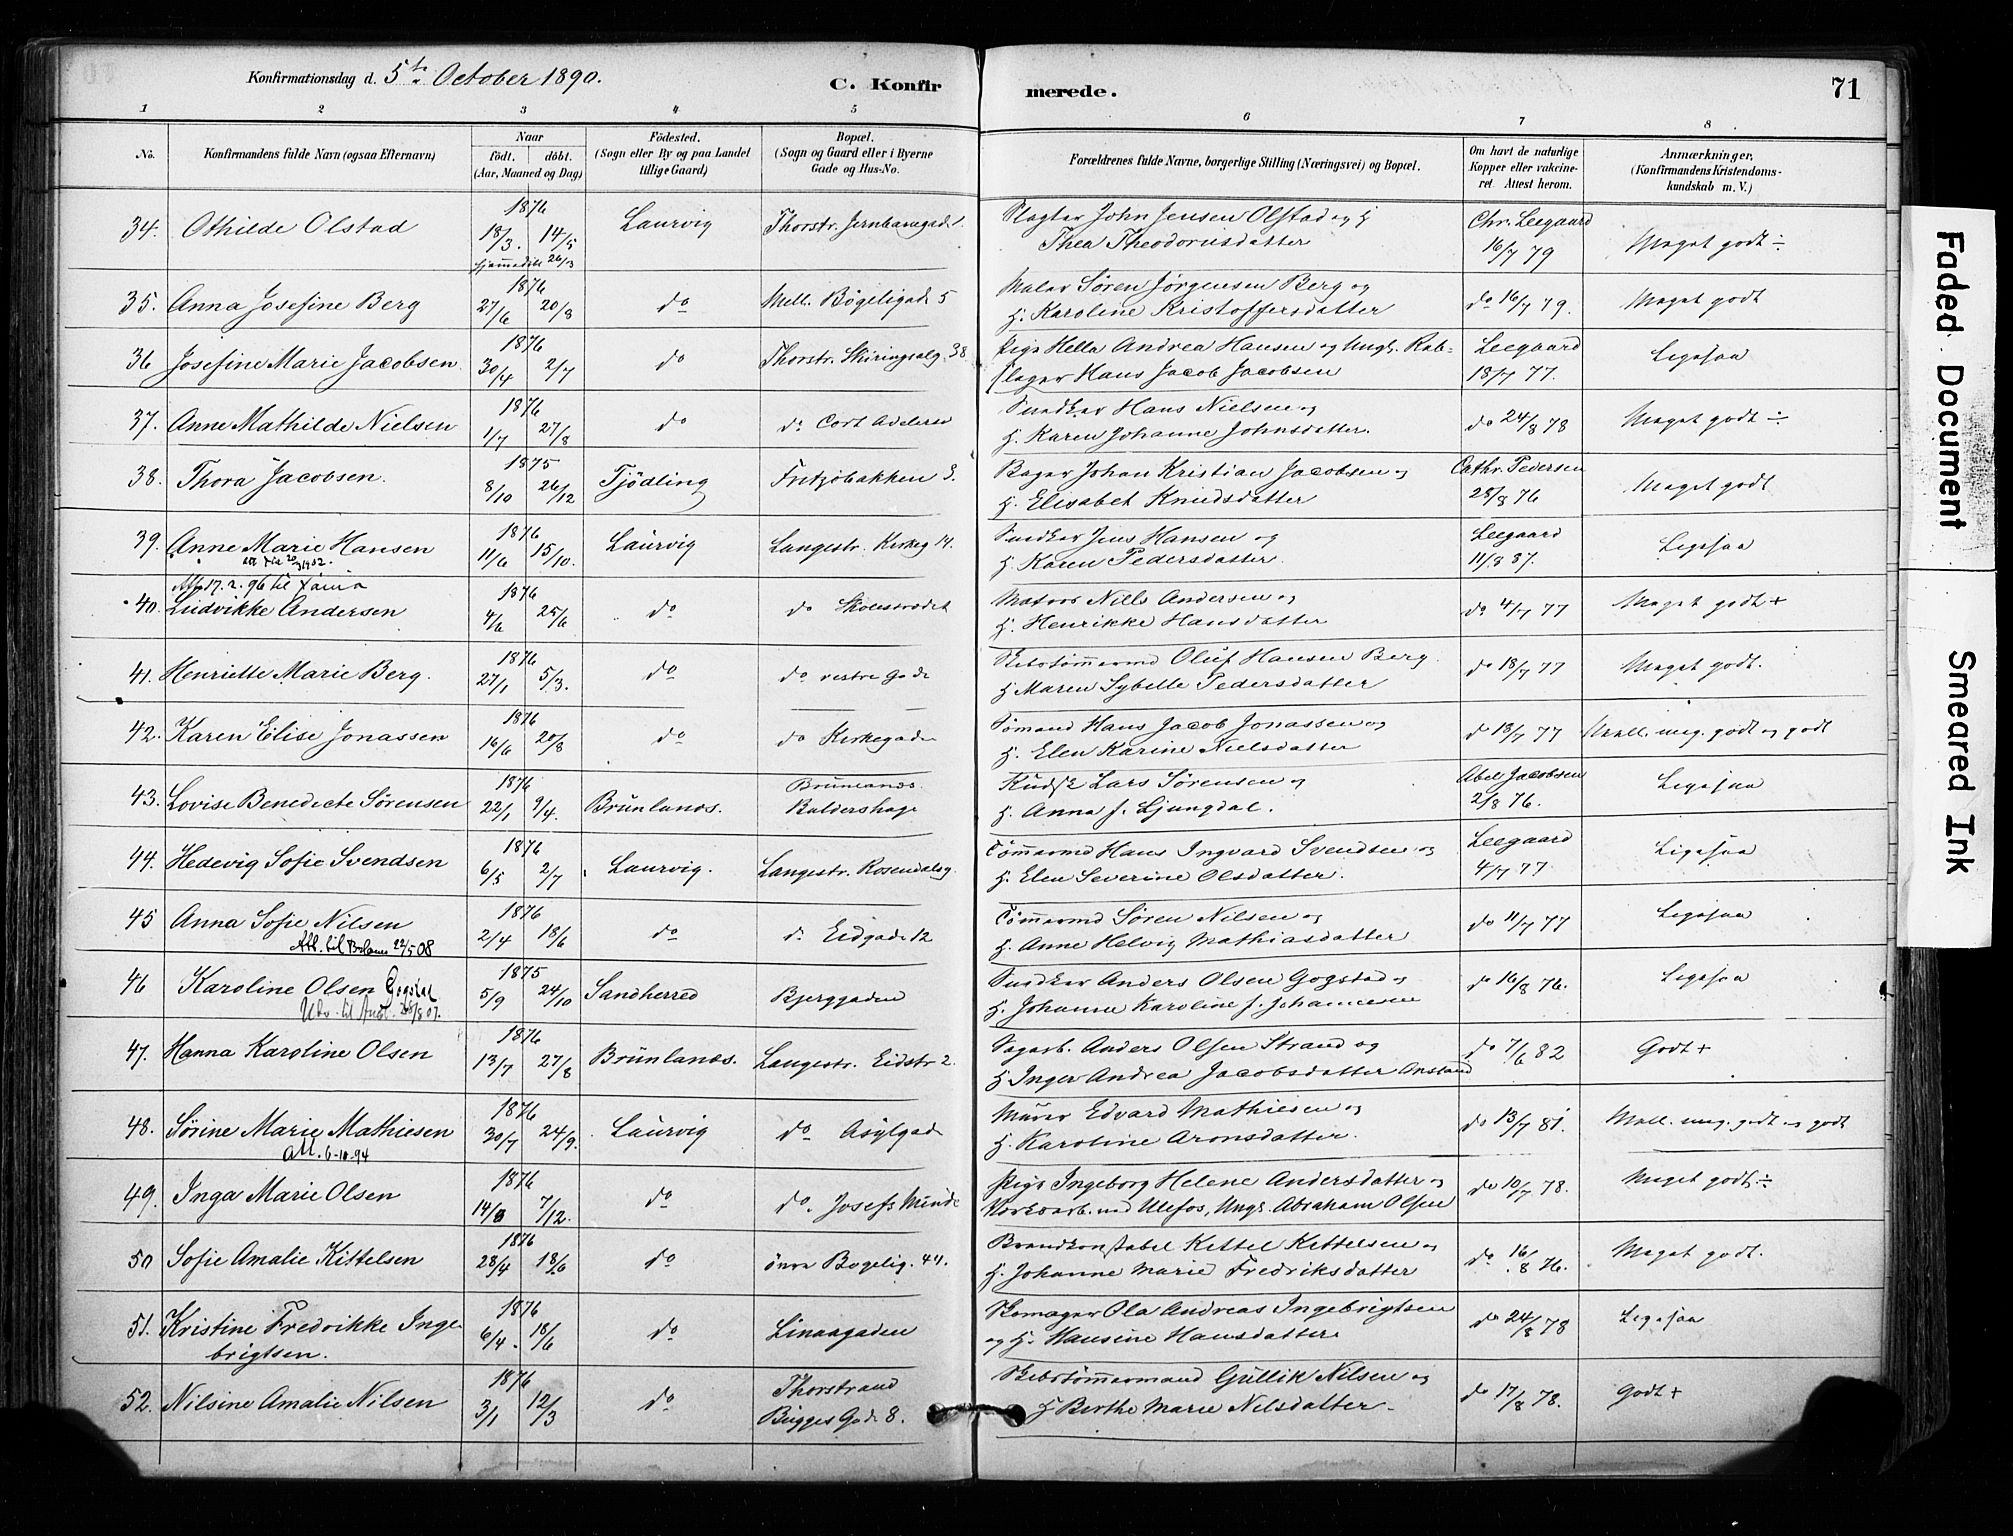 Konfirmationsdag d. 5te October 1890.
C. Konfirmerede.
71
1 2 3 4 5 6 7 8
No.
Konfirmandens fulde Navn (ogsaa Efternavn)
Naar
födt. döbt.
(Aar, Maaned og Dag)
Födested.
(Sogn eller By og paa Landet
tillige Gaard)
Bopæl.
(Sogn og Gaard eller i Byerne
Gade og Hus-No.
Forældrenes fulde Navne, borgerlige Stilling (Næringsvei) og Bopæl.
Om havt de naturlige
Kopper eller vakcine-
ret. Attest herom.
Anmærkninger.
(Konfirmandens Kristendoms-
kundskab m. V.)
34. Othilde Olstad 1876 18/3. 14/5 hjemmedöbt 26/3 Laurvig Thorstr. Jernbanegade 1 Slagter John Jensen Olstad og H
Thea Theodorusdatter Chr. Leegaard 16/7 79 Meget godt ÷
35. Anna Josefine Berg 1876 27/6 20/8 do Mell. Bøgeligade 5 Maler Sören Jörgensen Berg og
H. Karoline Kristoffersdatter do 16/7 79. Meget godt
36 Josefine Marie Jacobsen 1876 30/4 2/7 do Thorstr. Skiringsalg. 38 Pige Hella Andrea Hansen og Ungk. Reb-
slager Hans Jacob Jacobsen Leegaard 18/7 77. Ligesaa
37. Anne Mathilde Nielsen 1876 1/7 27/8 do do Cort Adelersg Snedker Hans Nielsen og
H. Karen Johanne Johnsdatter. do 24/8 78 Meget godt ÷
38. Thora Jacobsen. 1875 8/10 26/12 Tjödling Fritzöbakken 3. Bager Johan Kristian Jacobsen og
H. Elisabet Knudsdatter Cathr. Pedersen 28/8 76 Meget godt
39. Anne Marie Hansen 1876 11/6 15/10. Laurvig Langestr. Kirkeg 14. Snedker Jens Hansen og
H. Karen Pedersdatter. Leegaard 11/8 87. Ligesaa
40. Ludvikke Andersen 1876 4/6 25/6 do do Skolestrædet Matros Niels Andersen og
H. Henrikke Hansdatter do 4/7 77 Meget godt +
41. Henriette Marie Berg. 1876 27/1 5/3. do do vestre Gade Skibstömmermd Oluf Hansen Berg
H Maren Sybille Pedersdatter do 18/7 77 Meget godt.
42. Karen Elise Jonassen 1876 16/6 20/8 do do Kirkegade Sömand Hans Jacob Jonassen og
H. Elen Karine Nielsdatter do 18/7 77 Mell. meg. godt og godt
43. Lovise Benedicte Sörensen 1876 22/1 9/4. Brünlanæs. Brunlanæs.
Baldershage Kudsk Lars Sörensen og
H. Anna J. Ljungdal. Abel Jacobsen 2/8 76. Ligesaa
44. Hedevig Sofie Svendsen 1876 6/5 2/7 Laurvig. Langestr. Rosendalsg. Tömmermd Hans Ingvard Svendsen og
H. Elen Severine Olsdatter. Leegaard 4/7 77 Ligesaa
45 Anna Sofie Nilsen 1876 2/4 18/6 do do Eidgade 12 Tömmermd Sören Nilsen og
H. Anne Helvig Mathiasdatter do 11/7 77 Ligesaa
46 Karoline Olsen Gogstad 1875 5/9 24/10 Sandherred Bjerggaden Snedker Anders Olsen Gogstad og
H. Johanne Karoline J. Johannesen do 16/8 76. Ligesaa
47. Hanna Karoline Olsen 1876 13/7 27/8 Brünlanæs. Langestr. Eidstr 2. Sagarb. Anders Olsen Strand og
H Inger Andrea Jacobsdatter do 7/6 82 Godt +
48. Sörine Marie Mathiesen
Att. 6-10-94 1876 30/7 24/9. Laurvig do Asylgade Murer Edvard Mathiesen og
H. Karoline Aronsdatter. do 13/7 81. Mell. meg. godt og godt
49. Inga Marie Olsen 1876 7/12. do do. Josefs Minde Pige Ingeborg Helene Andersdatter og
Værksarb. ved Ulefos, Ungk. Abraham Olsen do 10/7 78. Meget godt ÷
50 Sofie Amalie Kittelsen 1876 28/4 18/6 do övre Bøgelig. 44. Brandkonstabel Kittel Kittelsen og
H. Johanne Marie Fredriksdatter do 16/8 76. Meget godt.
51. Kristine Fredrikke Inge-
brigtsen. 1876 6/4. 18/6 do Linaagaden Skomager Ola Andreas Ingebrigtsen
og H. Hansine Hansdatter do 24/8 78 Ligesaa
52. Nilsine Amalie Nilsen 1876 3/1 12/3 do Thorstrand
Bugges Gade 8. Skibstömmermand Gullik Nilsen og
H Berthe Marie Nilsdatter. do 17/8 78. Godt +
Faded Document Smeared Ink